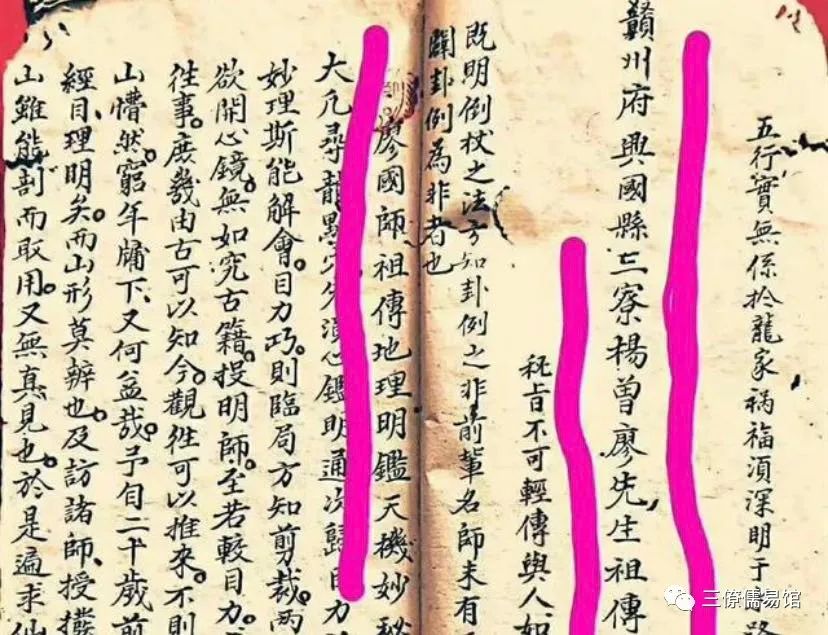 五行實無係扵龍家禍福湏深明于
贛州府興國縣三寮楊曾廖先生祖傳
秘旨不可輕傳與人如
既明倒杖之法方知卦例之非前輩名師未有
闢卦例為非者也
廖國師祖傳地理明鑑天機妙秘
大凡尋龍點穴先湏心鑑明通次歸目力
妙理斯能解會。目力巧。則臨局方知剪裁。兩
欲開心鏡。無如究古籍。投明師。至若較目力。
徃事。庶幾由古可以知今。觀徃可以推來。不則
山懵然。窮年牖下、又何益哉。予自二十歲前
經目、理明矣。而山形莫辨也。及訪諸師、授撥
山雖能剖而取用。又無真見也。於是遍求仙
三僚儒易馆